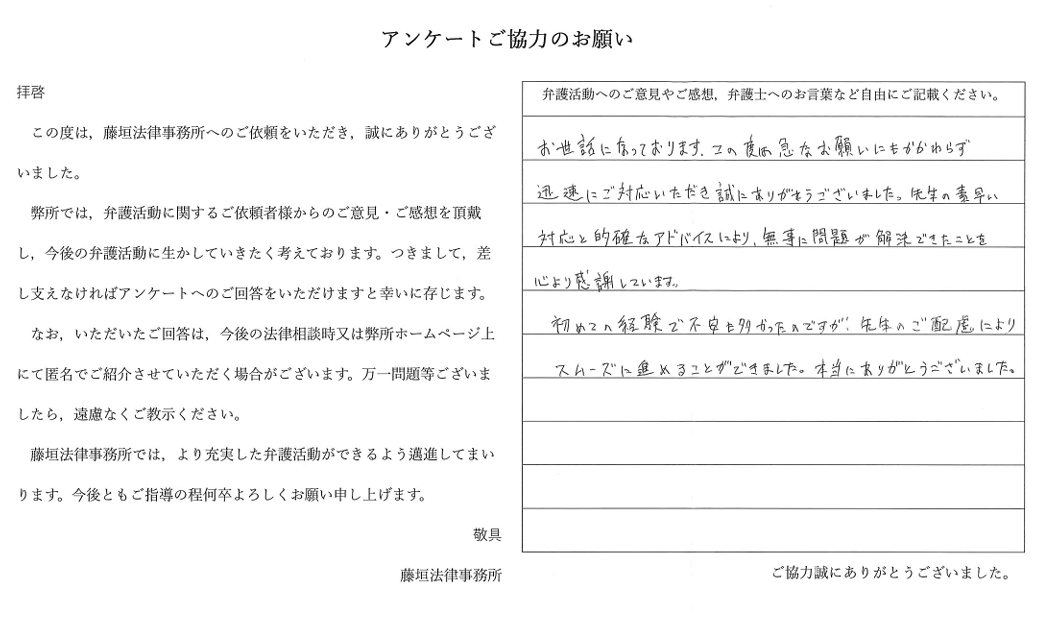 アンケートご協力のお願い
拝啓
この度は，藤垣法律事務所へのご依頼をいただき，誠にありがとうござ
いました。
弊所では，弁護活動に関するご依頼者様からのご意見・ご感想を頂戴
し，今後の弁護活動に生かしていきたく考えております。つきまして，差
し支えなければアンケートへのご回答をいただけますと幸いに存じます。
なお，いただいたご回答は，今後の法律相談時又は弊所ホームページ上
にて匿名でご紹介させていただく場合がございます。万一問題等ございま
したら，遠慮なくご教示ください。
藤垣法律事務所では，より充実した弁護活動ができるよう邁進してまい
ります。今後ともご指導の程何卒よろしくお願い申し上げます。
敬具
藤垣法律事務所
弁護活動へのご意見やご感想，弁護士へのお言葉など自由にご記載ください。
お世話になっております。この度は急なお願いにもかかわらず
迅速にご対応いただき誠にありがとうございました。先生の素早い
対応と的確なアドバイスにより，無事に問題が解決できたことを
心より感謝しています。
初めての経験で不安も多かったのですが，先生のご配慮により
スムーズに進めることができました。本当にありがとうございました。
ご協力誠にありがとうございました。